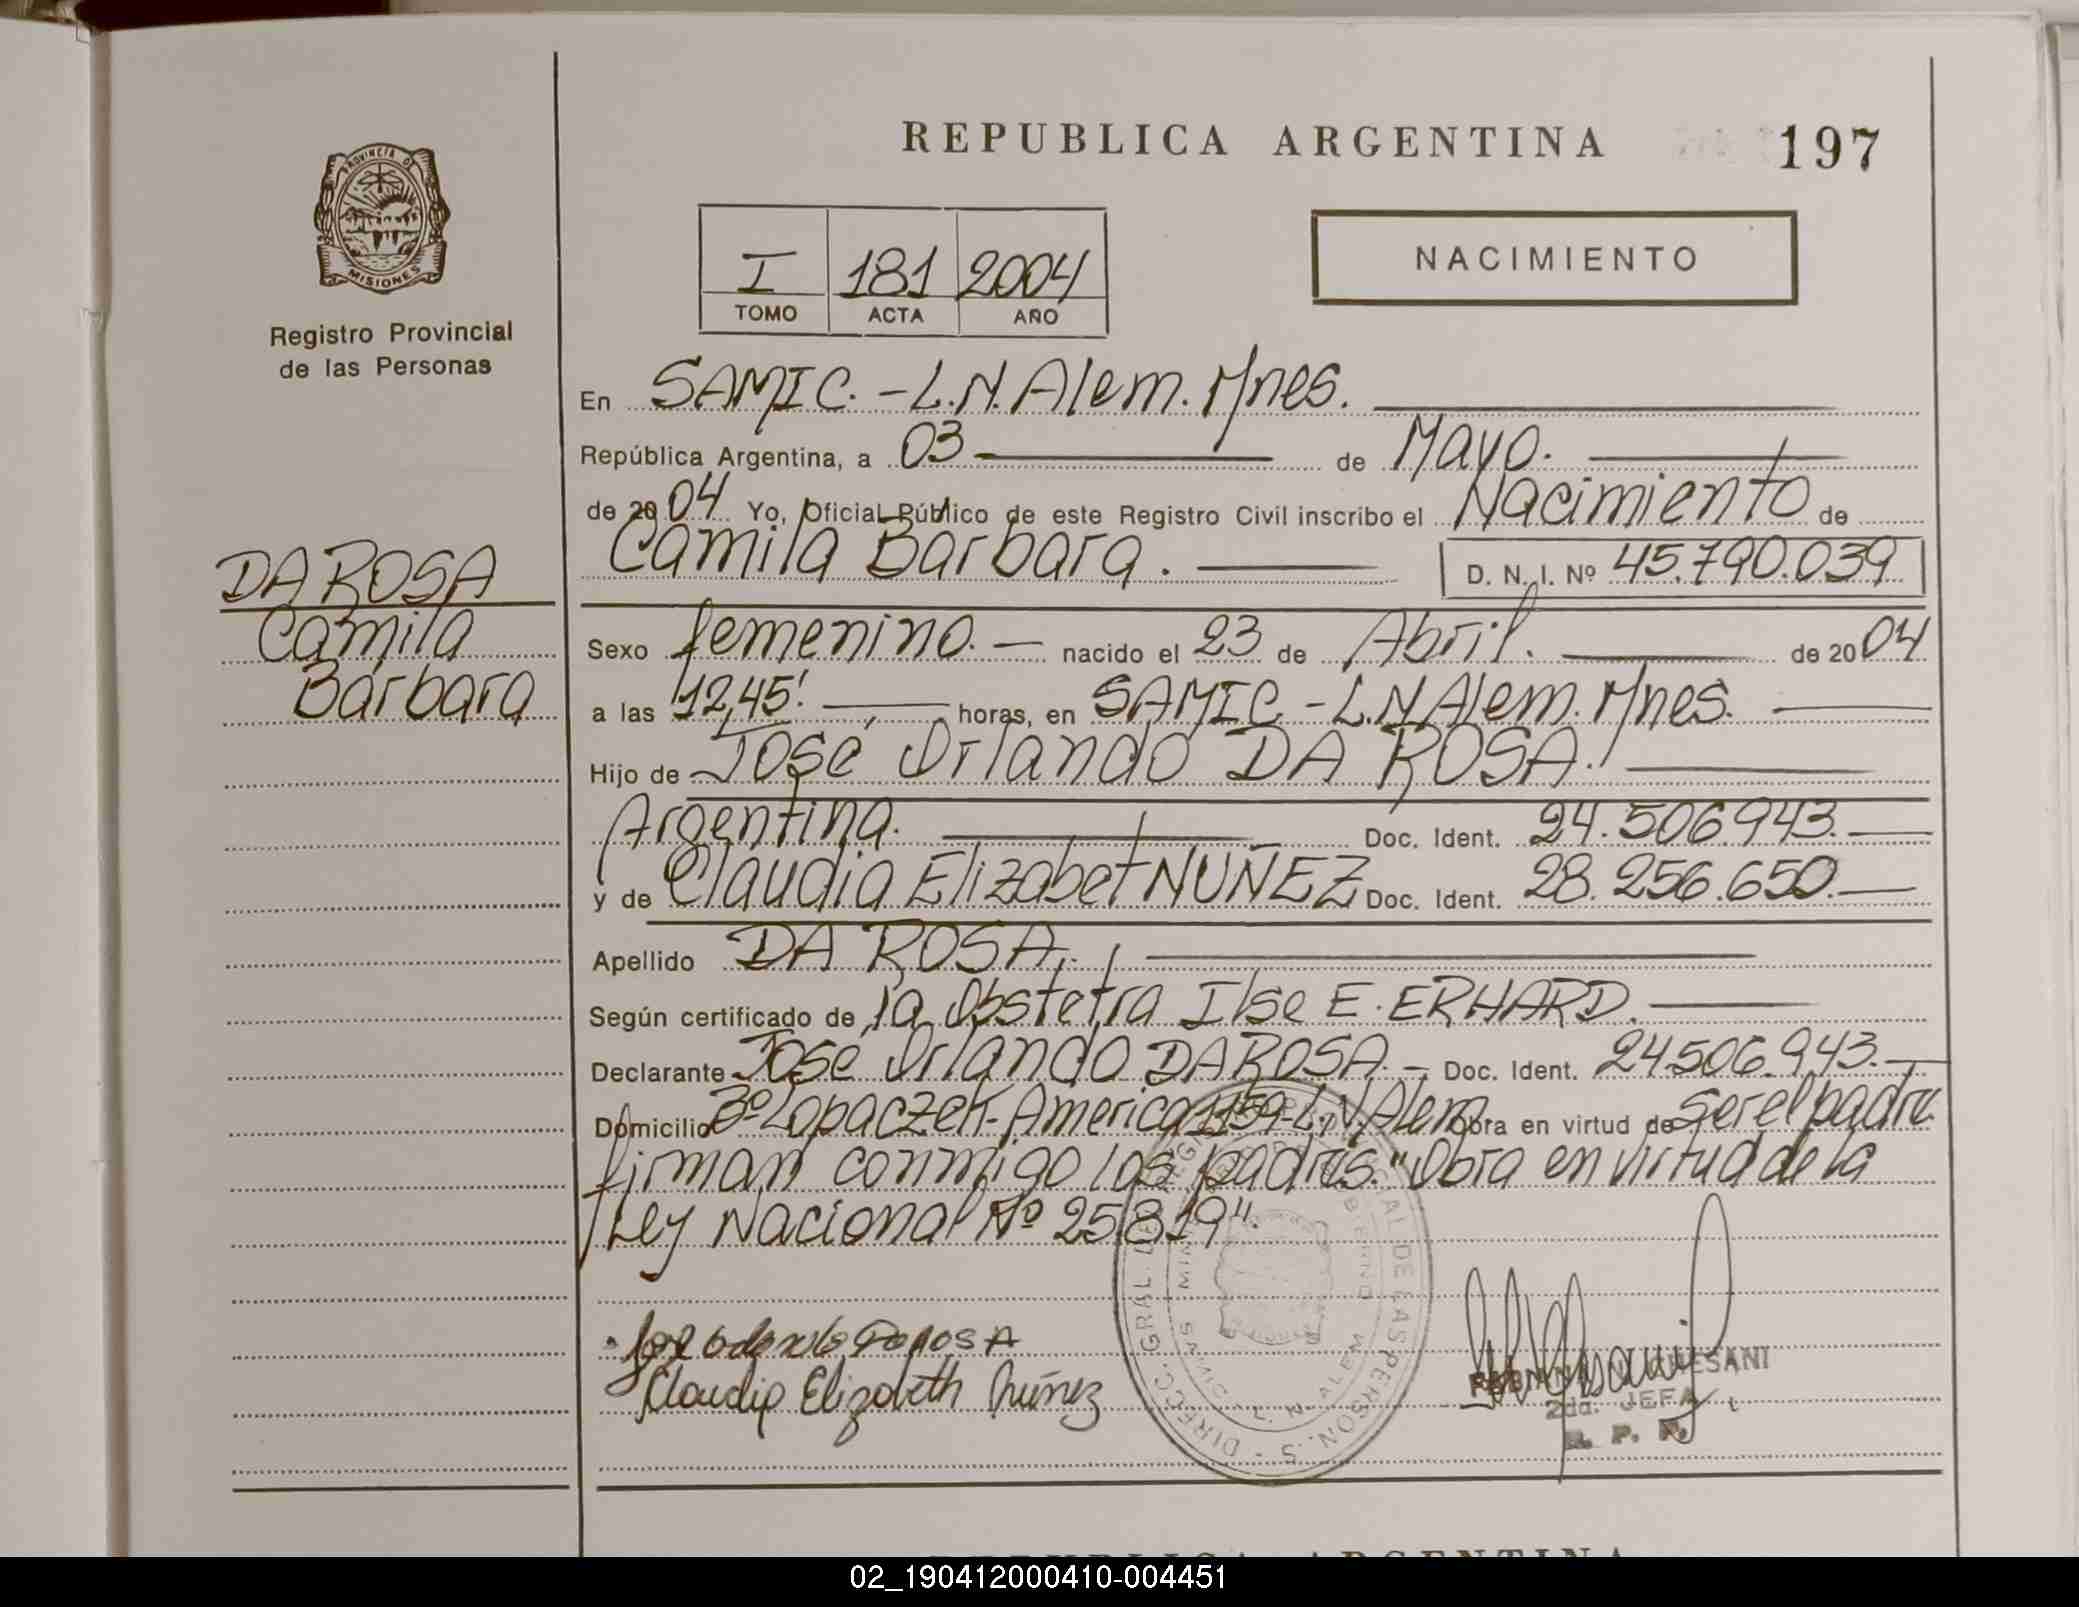 REPUBLICA ARGENTINA
197
PROVINCIA DE
MISIONES
Registro Provincial
de las Personas
I 181 2004
TOMO ACTA AÑO
NACIMIENTO
En SAMIC. - L.N. Alem. Mnes.
República Argentina, a 03 de Mayo.
de 2004 Yo, Oficial Público de este Registro Civil inscribo el Nacimiento de
Camila Barbara. D. N. I. Nº 45.790.039
DA ROSA
Camila
Barbara
Sexo femenino. - nacido el 23 de Abril. de 2004
a las 12,45' horas, en SAMIC - L.N Alem. Mnes.
Hijo de José Orlando DA ROSA.
Argentina. Doc. Ident. 24.506.943.
y de Claudia Elizabet NUÑEZ Doc. Ident. 28.256.650.
Apellido DA ROSA.
Según certificado de la Obstetra Ilse E. ERHARD.
Declarante José Orlando DA ROSA. - Doc. Ident. 24.506.943.
Domicilio Bº Lopaczek - America 1159 - L.N. Alem Obra en virtud de ser el padre
firman conmigo los padres. "Obra en virtud de la
Ley Nacional Nº 25.819".
Claudia Elizabeth Núñez
DIRECC. GRAL. DE LAS PERSON.S
L. N. ALEM
GHESANI
2da. JEFA
R. P. P.
REPUBLICA ARGENTINA
02_190412000410-004451